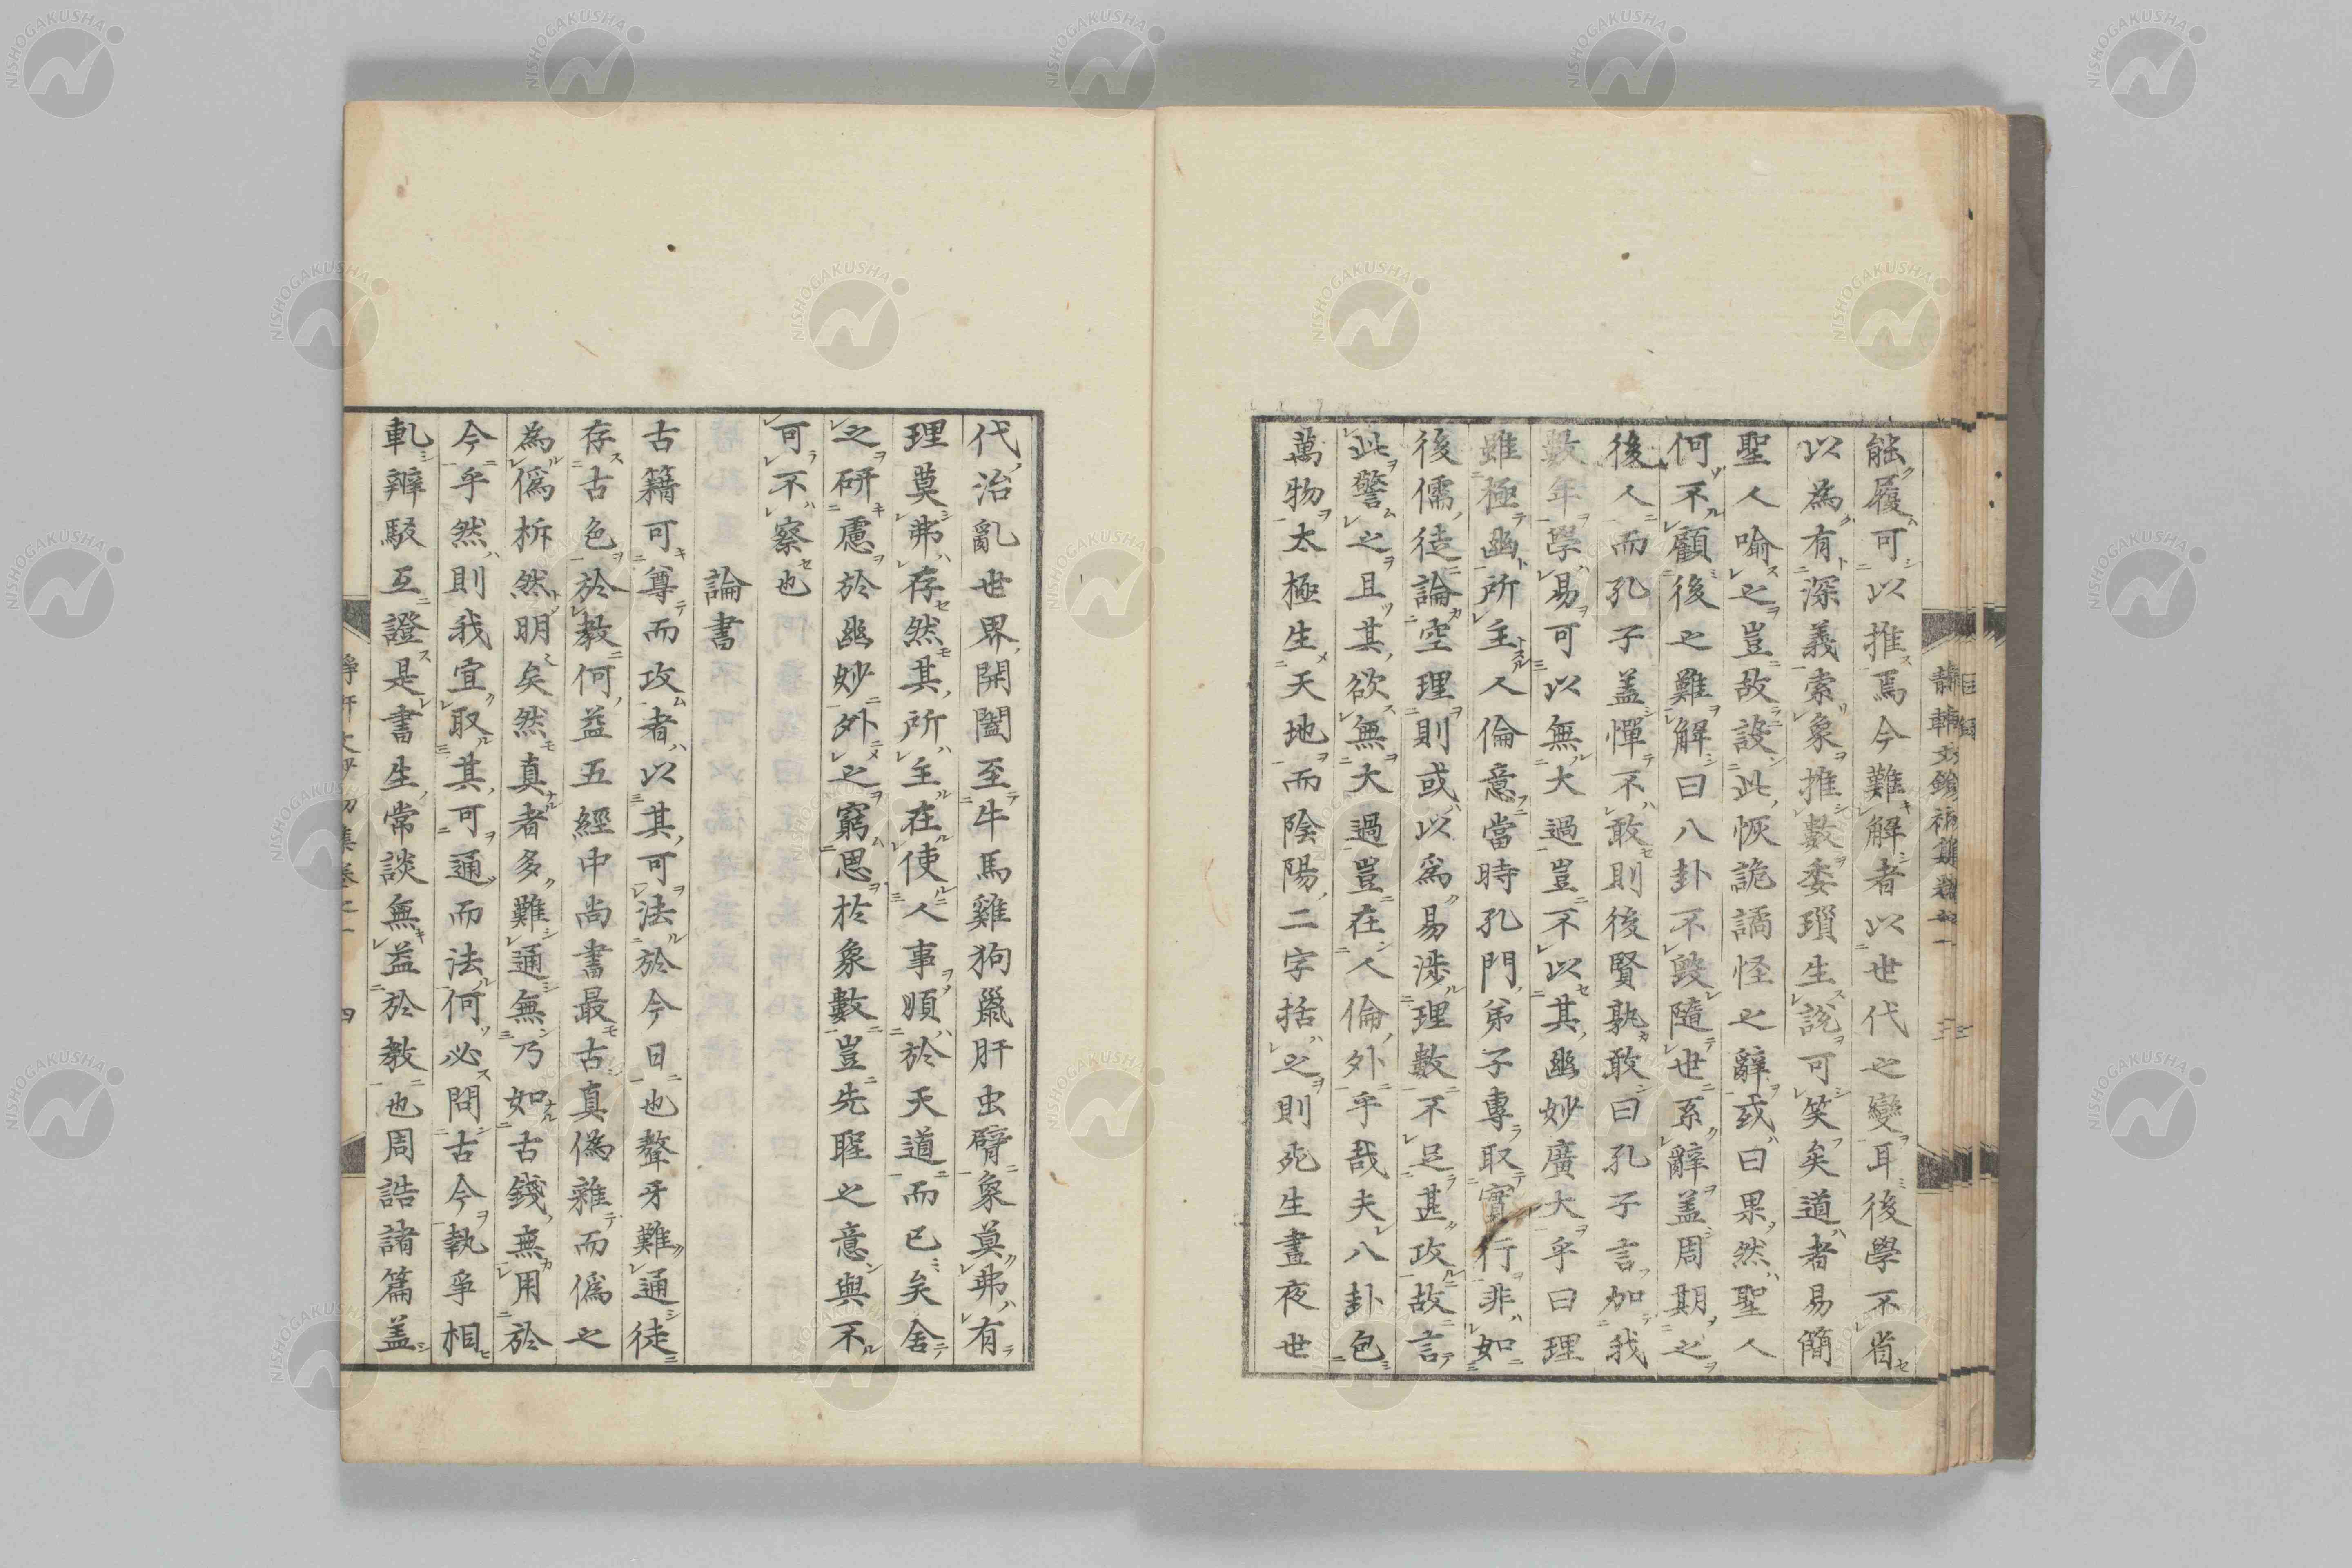 能履可以推焉今難解者以世代之變耳後學不省
以為有深義索象推數委瑣生說可笑矣道者易簡
聖人喩之豈故設此恢詭譎怪之辭或曰果然聖人
何不顧後之難解曰八卦不毀隨世系辭盖周期之
後人而孔子盖憚不敢則後賢孰敢曰孔子言加我
數年學易可以無大過豈不以其幽妙廣大乎曰理
雖極幽所主人倫意當時孔門弟子專取實行非如
後儒徒論空理則或以爲易涉理數不足甚攻故言
此警之且其欲無大過豈在人倫外乎哉夫八卦包
萬物太極生天地而陰陽二字括之則死生晝夜世
代治亂世界開闔至牛馬雞狗鼠肝虫臂象莫弗有
理莫弗存然其所主在使人事順於天道而已矣舍
之研慮於幽妙外之窮思於象數豈先聖之意與不
可不察也
論書
古籍可尊而攻者以其可法於今日也聱牙難通徒
存古色於教何益五經中尚書最古真偽雜而僞之
為僞柝然明矣然真者多難通無乃如古錢無用於
今乎然則我宜取其可通而法何必問古今執爭相
軋辨駁互證是書生常談無益於教也周誥諸篇盖
NISHOGAKUSHA